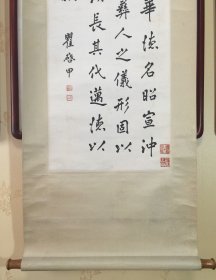 華德名昭宣沖
彝人之儀形固以
長其代邁德以
瞿啟甲